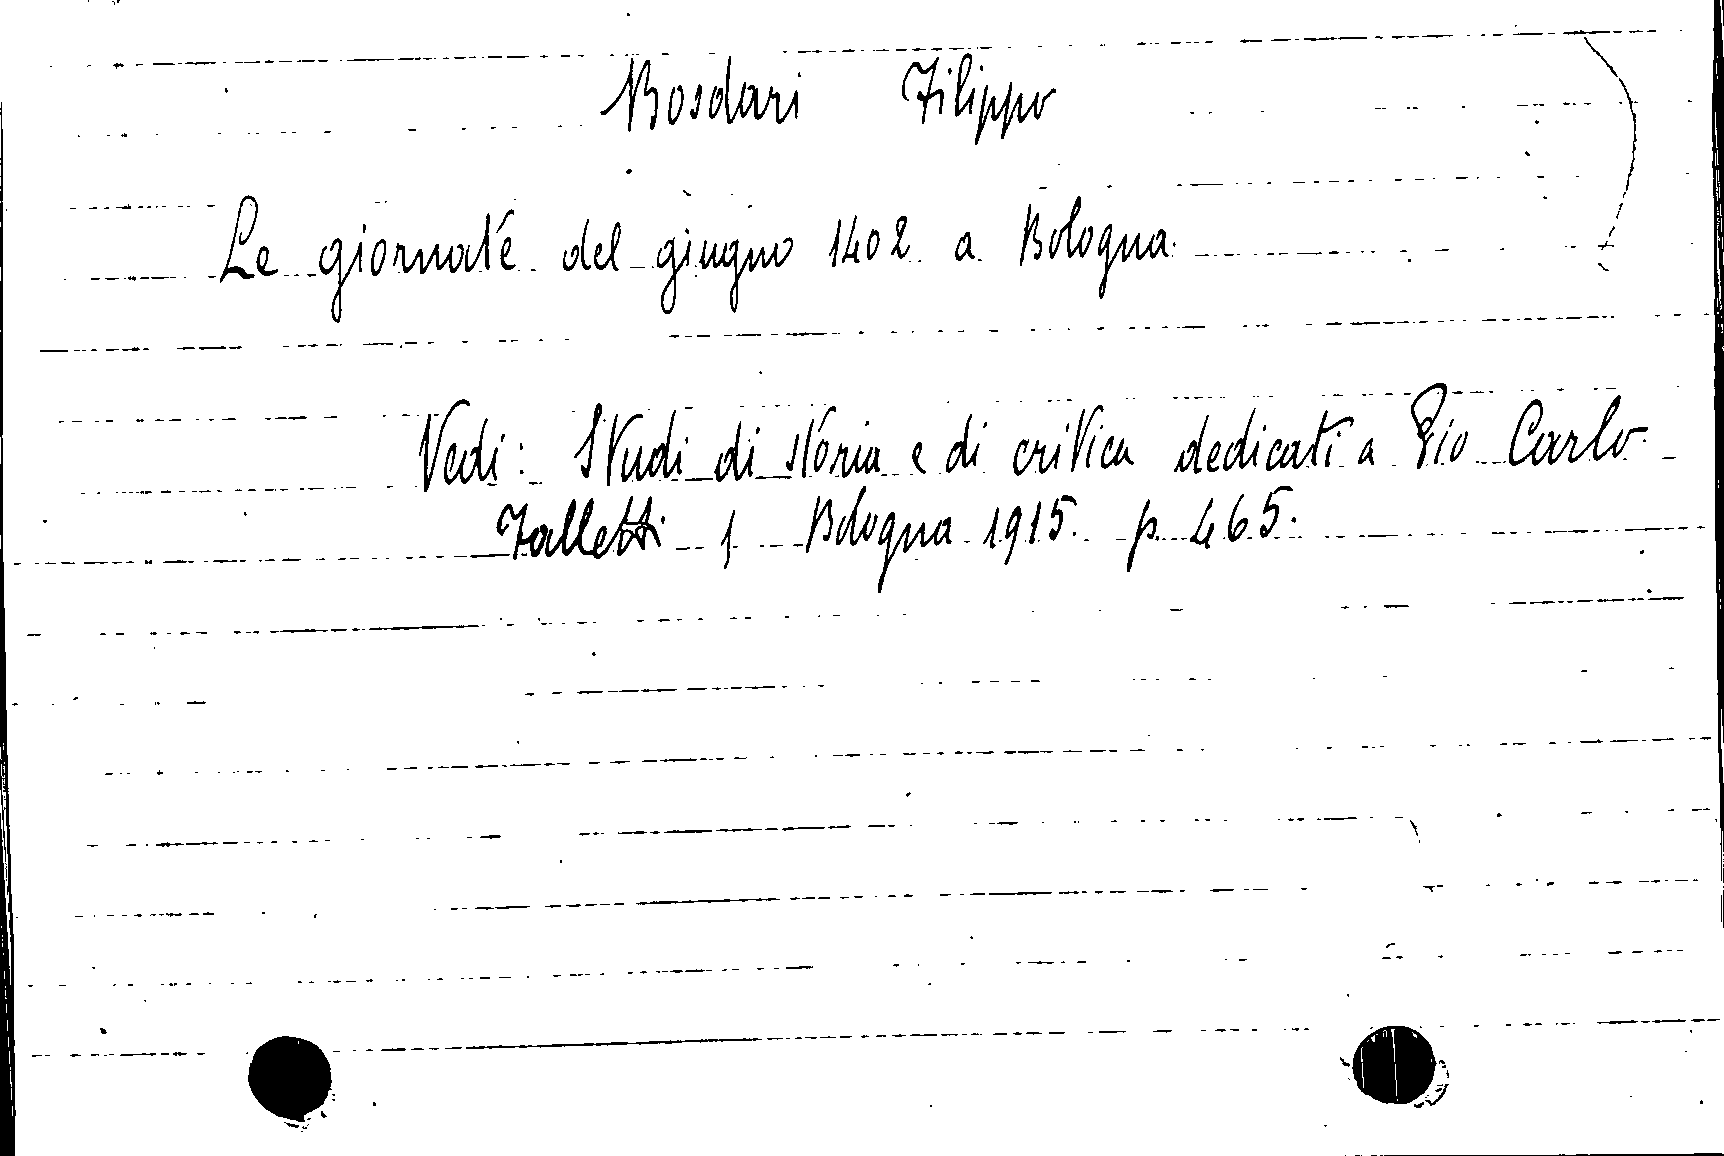 Bosdari Filippo
Le giornate del giugno 1402 a Bologna.
Vedi: Studi di storia e di critica dedicati a Pio Carlo
Falletti, Bologna 1915. p. 465.